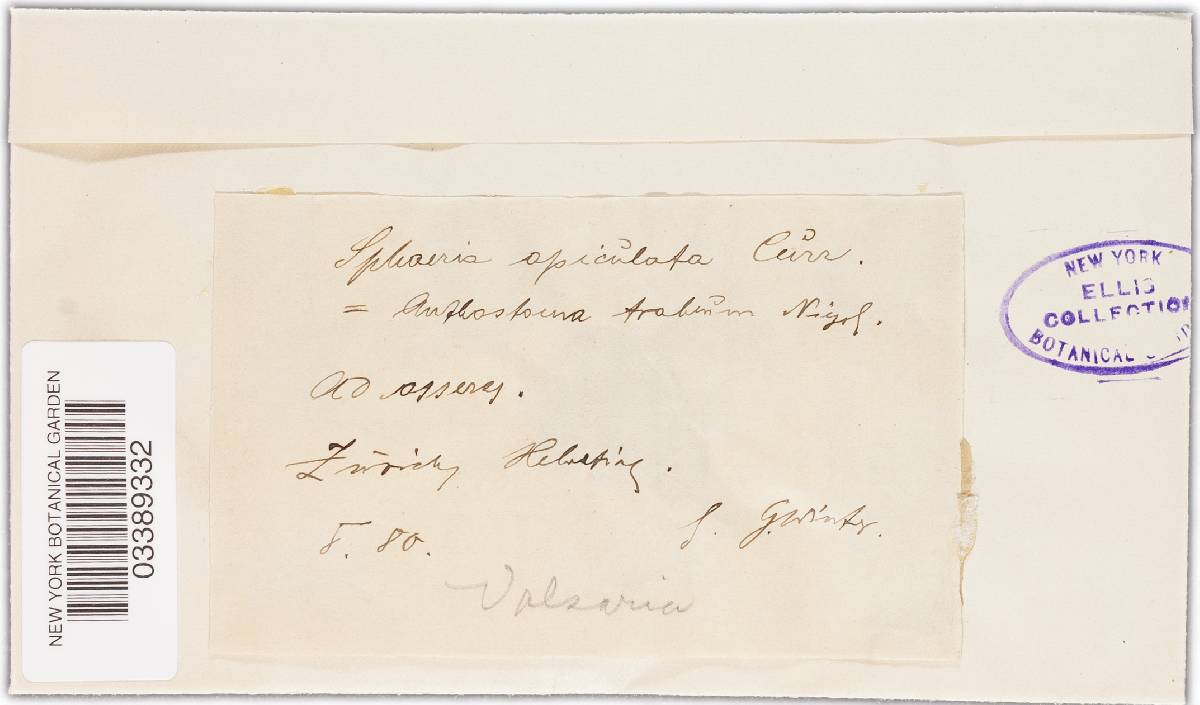 Sphaeria apiculata Curr.
= Anthostoma trabeum Niessl.
Ad asseres.
Zürich, Helvetiae.
8. 80.
G. Winter.
Valsaria
NEW YORK
ELLIS
COLLECTION
BOTANICAL
NEW YORK BOTANICAL GARDEN
03389332